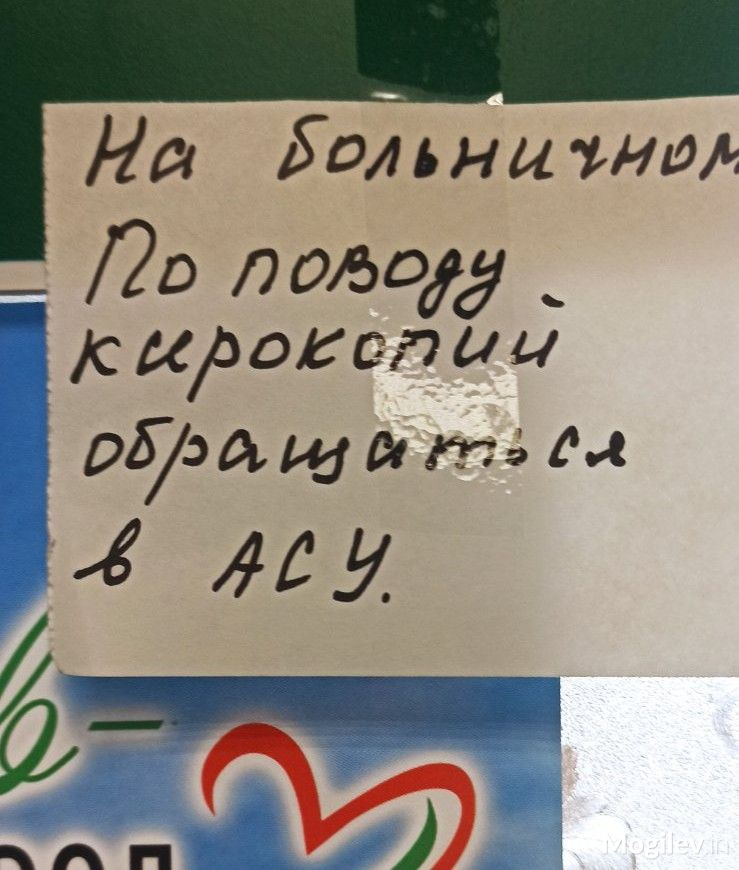 На больничном
По поводу
кирокопий
обращаться
в АСУ.
Mogilev.in